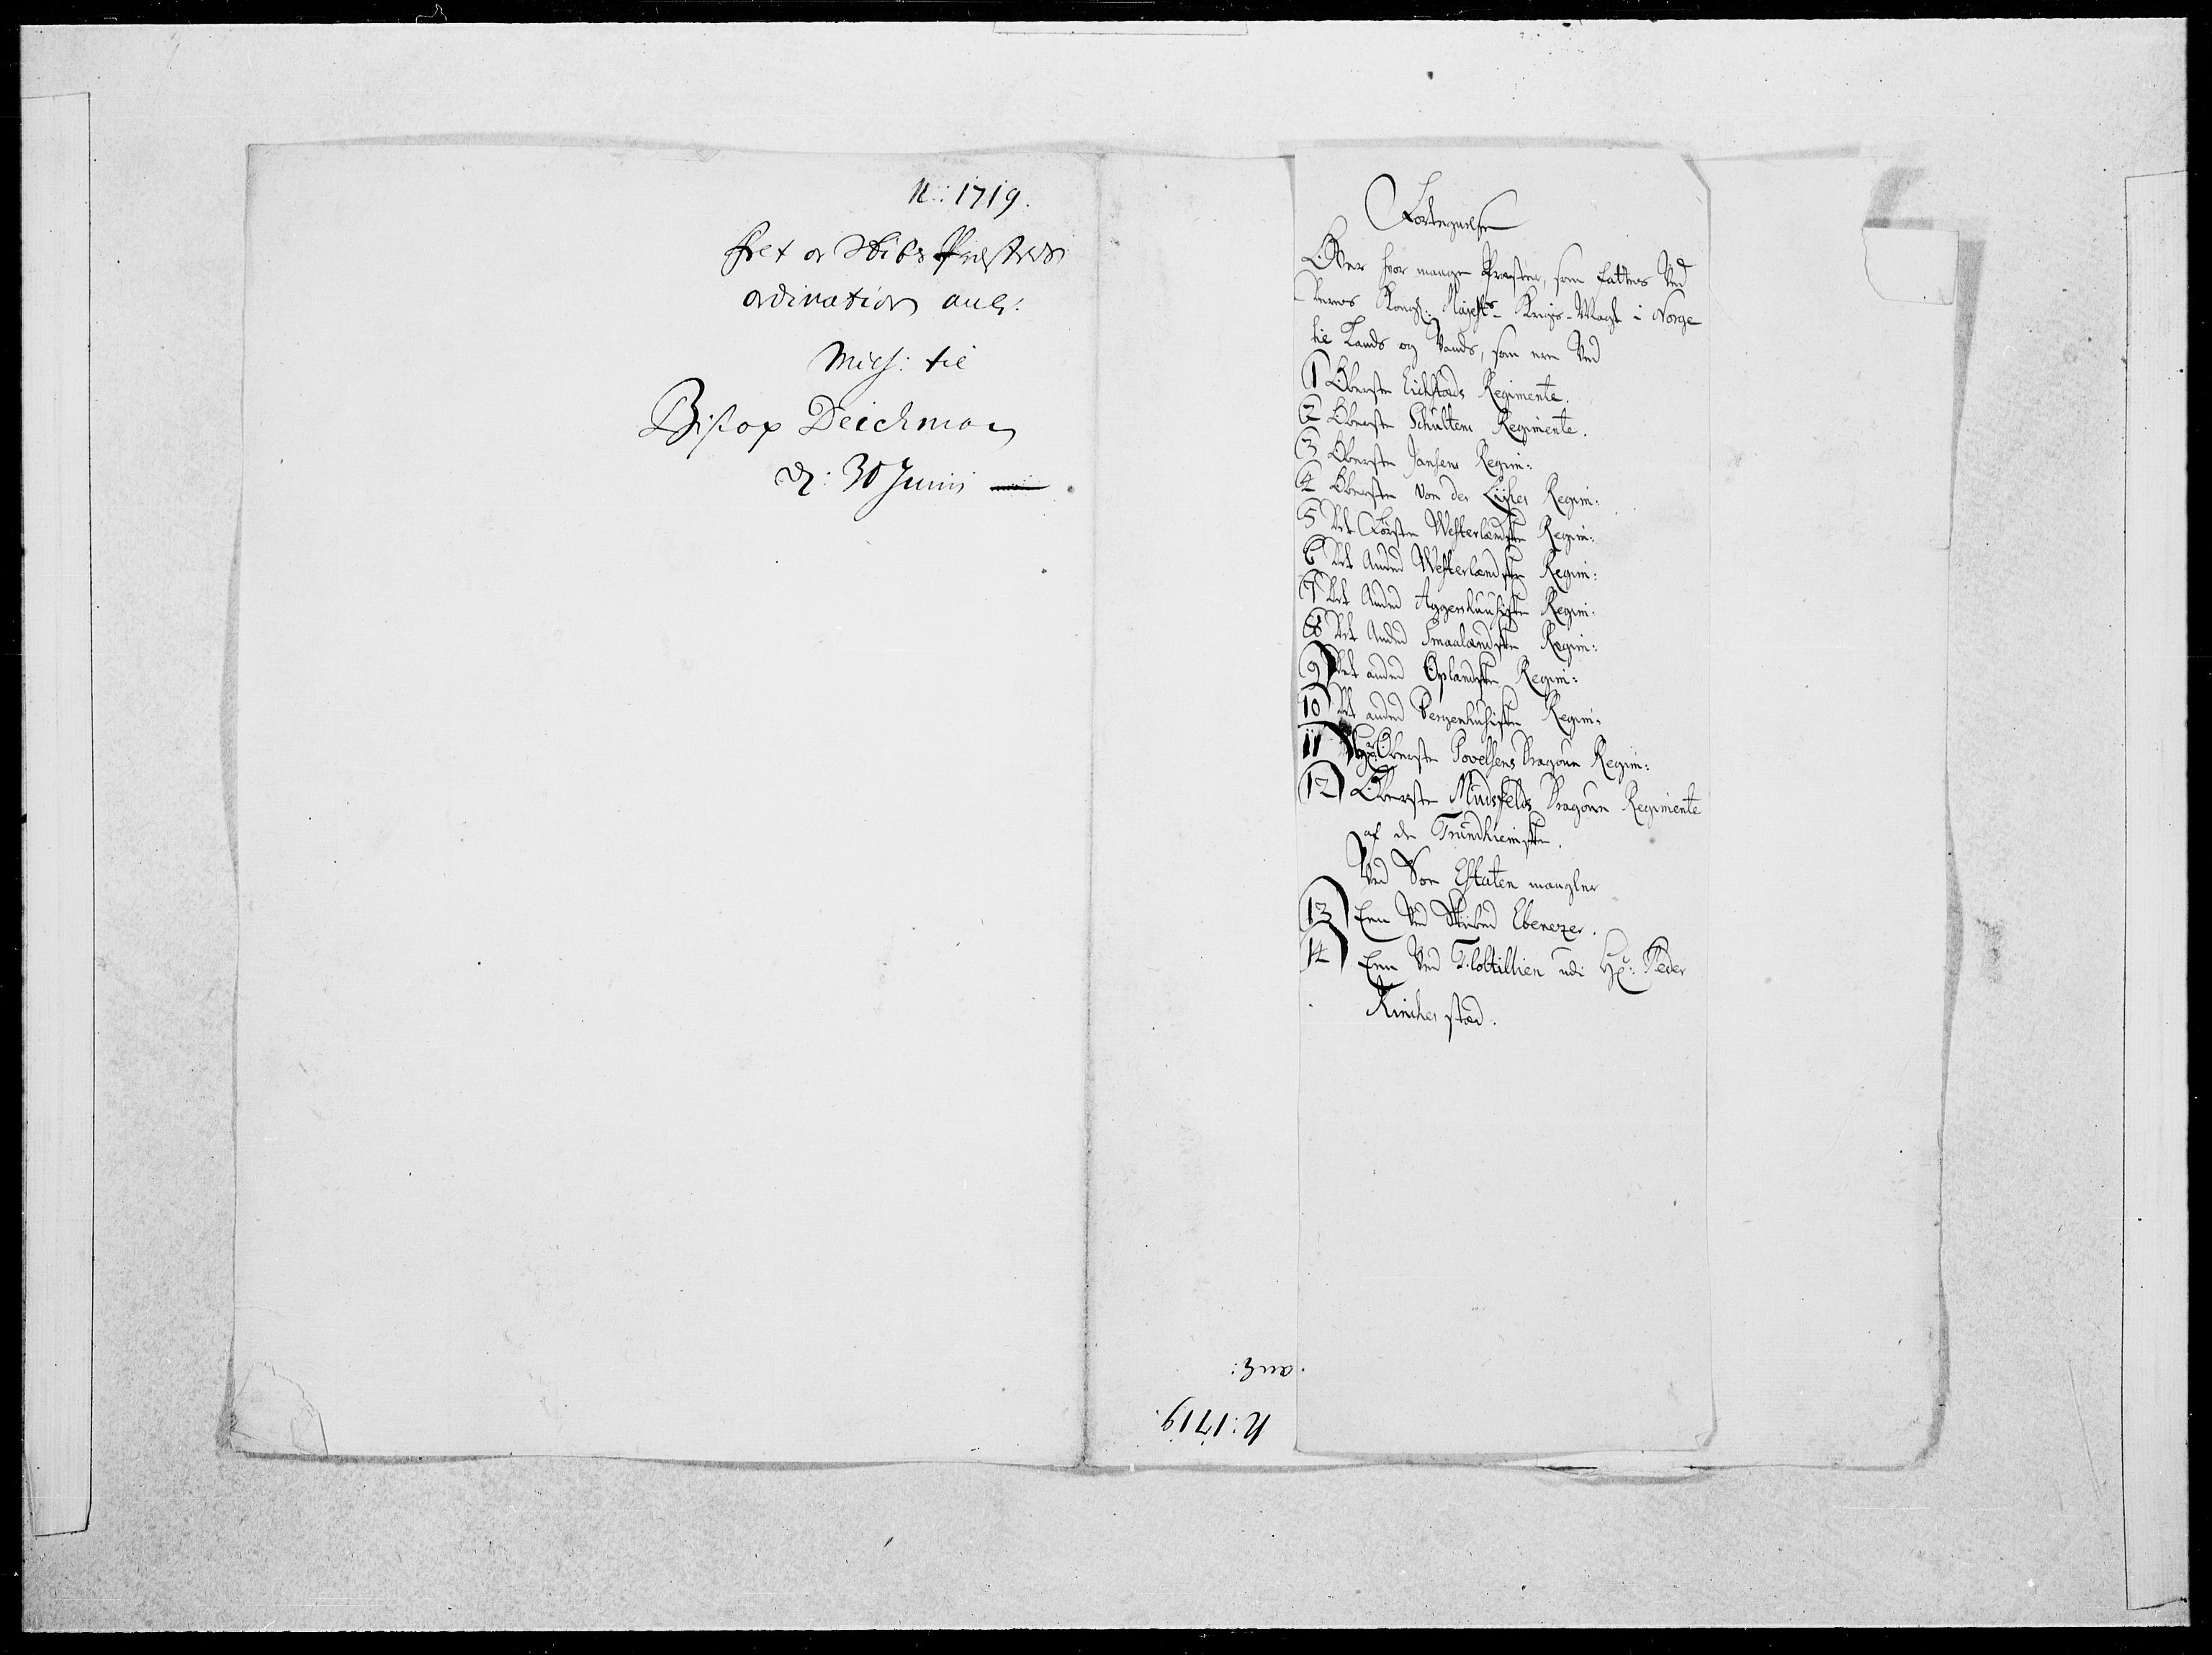 N: 1719.
Felt og Skibs Præsters
ordination anlg:
Miss: til
Biskop Deichman
d: 30 Junii
Fortegnelse
Over hvor mange Præster, som fattes Ved
Deres Kongl: Majest:s Krigs-Magt i Norge
til Lands og Vands, som ere Ved
1 Obersten Eichstæds Regimente.
2 Obersten Schultens Regimente.
3 Obersten Jansens Regim:
4 Obersten von der Lÿhes Regim:
5 Det Første Westerlændske Regim:
6 Det Anded Westerlændske Regim:
7 Det Andet Aggershuusiske Regim:
8 Det Andet Smaalændske Regim:
9) Det andet Oplandske Regim:
10) Det andet Bergenhusiske Regim:
11) Hr: Obersten Povelsens Dragoun Regim:
12) Obersten Mudsfelds Dragoun Regimente
af de Trundhiemske.
Ved Søe Estaten mangler
13) Een Ved Skibed Ebenezer.
14) Een Ved Flottillien udi Hr: Peder
Kinches sted.
anlg:
N: 1719.